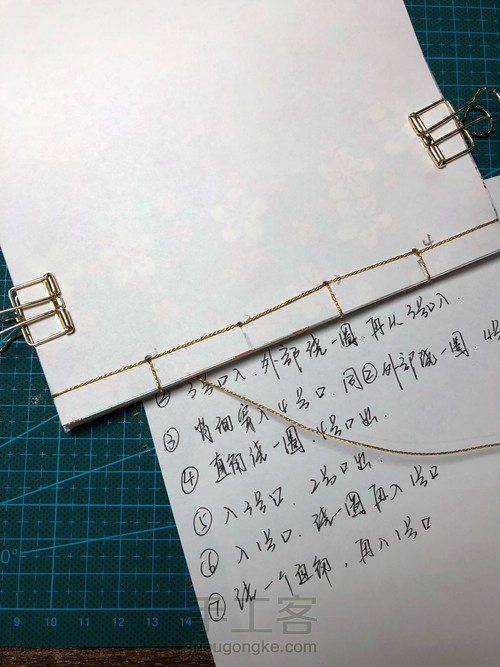 4
3
2
1
② 3号口入.外部绕一圈.再从3号口入.
③ 背面穿入4号口.同②外部绕一圈.4号
④ 直角绕一圈.4号口出.
⑤ 入3号口.2号口出.
⑥ 入1号口.绕一圈再入1号口
⑦ 绕一个直角.再入1号口
0°
9 10 11 12 13 14
手工客
shougongke.com